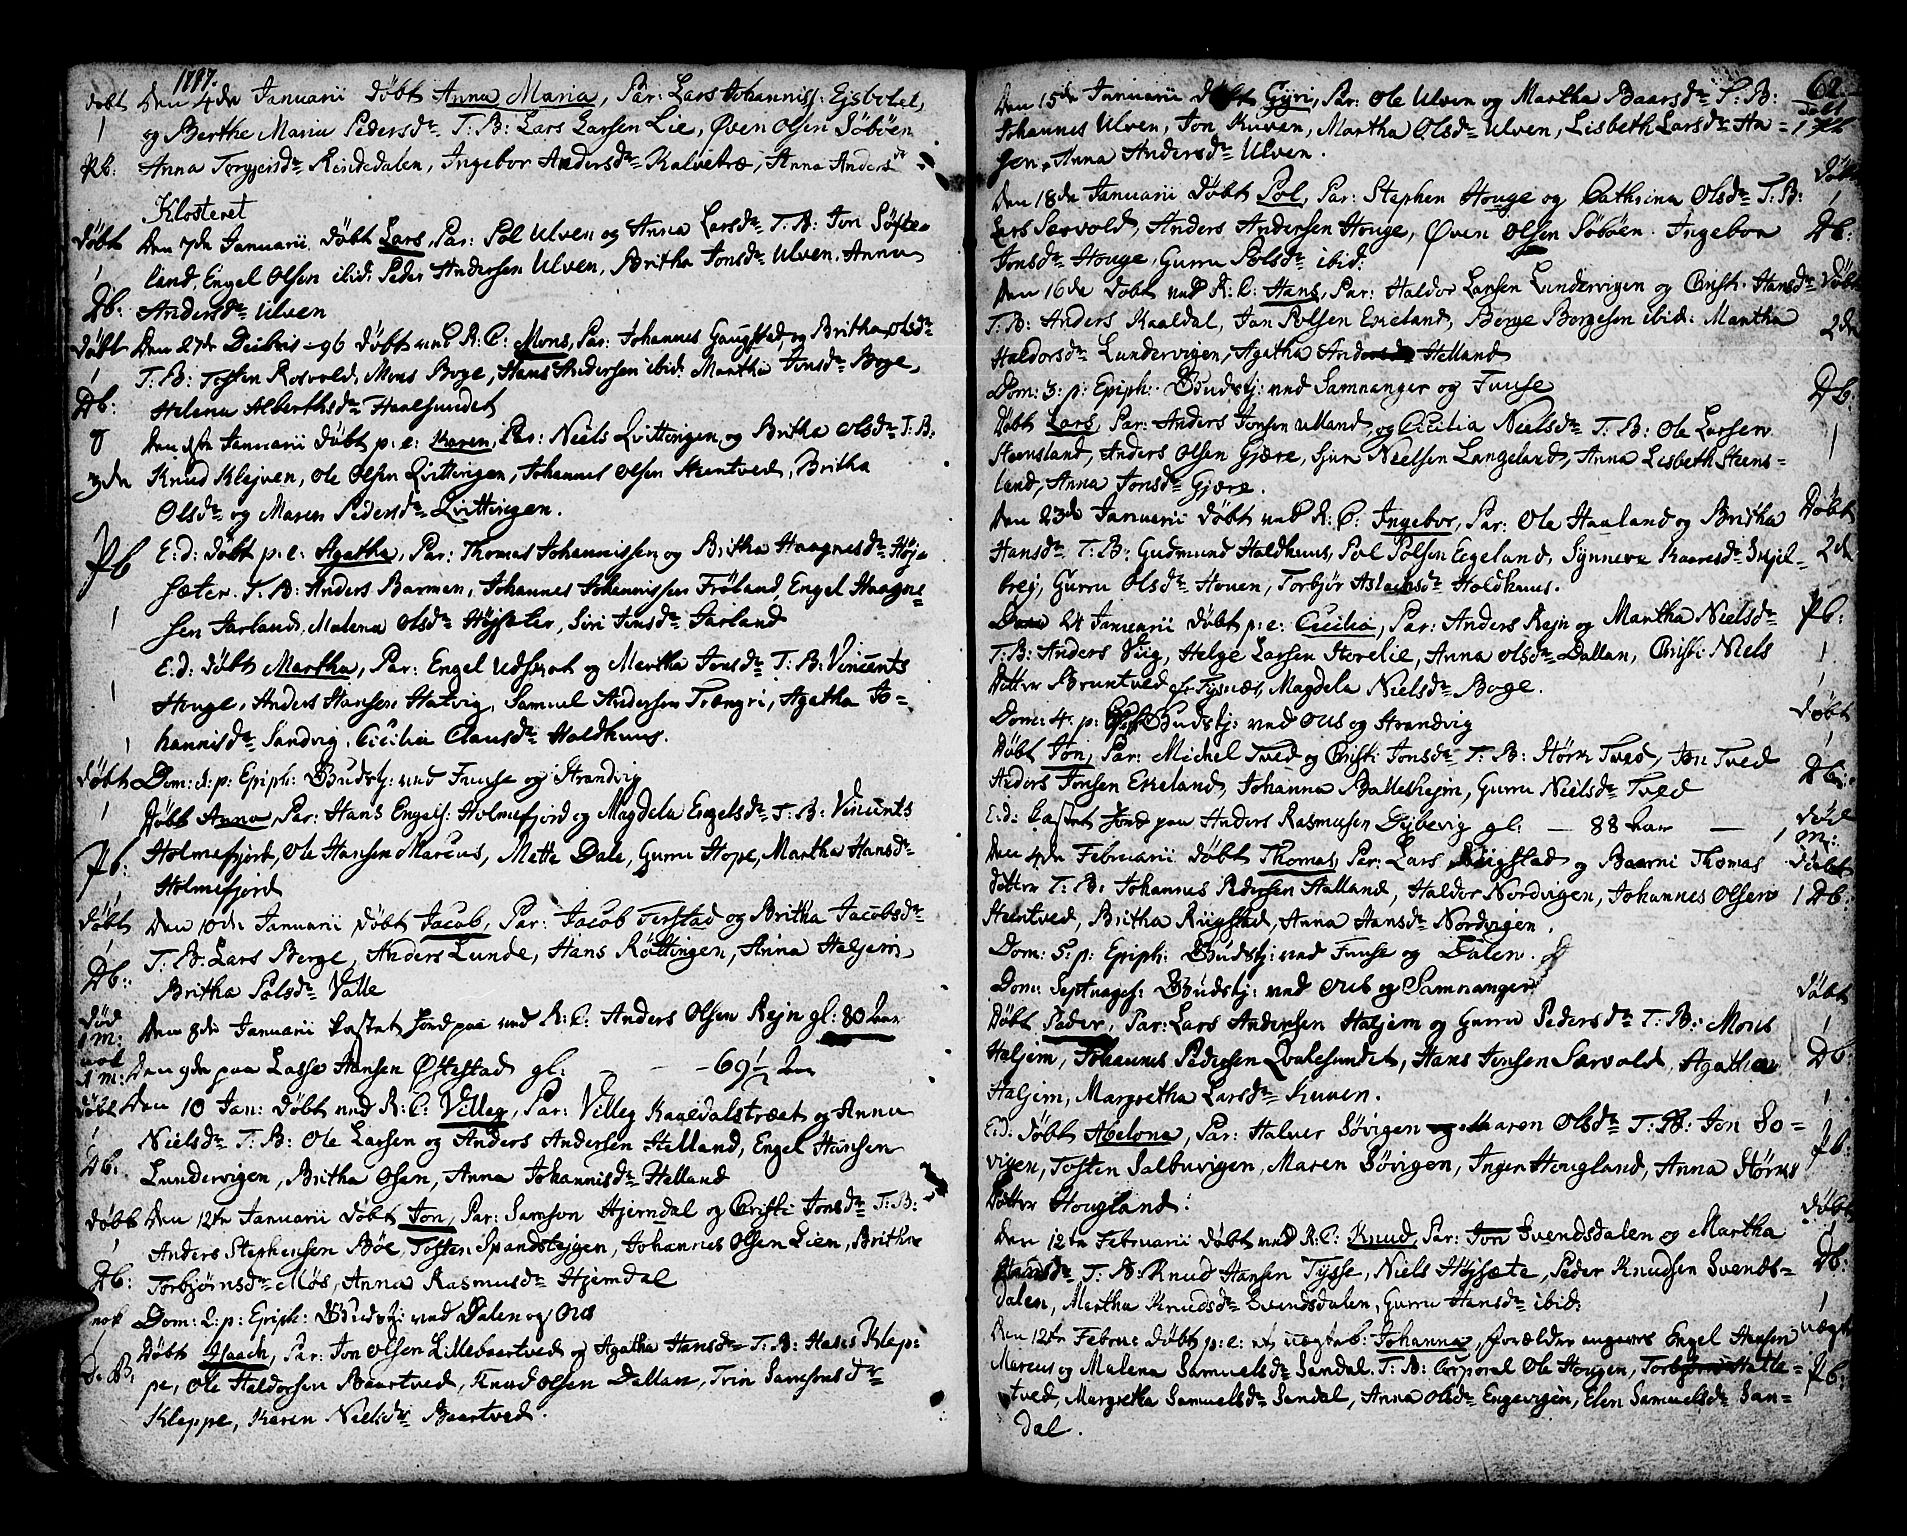 1797.
døbt Den 4de Januarii døbt Anna Maria, Par: Lars Johanniss: Ejsbolet,
1 og Berthe Maria Pedersdr T: B: Lars Larsen Lie, Øven Olsen Søbøen
Pb: Anna Torgiersdr Rindedalen, Ingebor Andersdr Kalvebræ, Anna Andersdr
Klosteret
døbt Den 7de Januarii døbt Lars, Par: Pol Ulven og Anna Larsdr T: B: Jon Søfte-
1 land, Engel Olsen ibid: Peder Andersen Ulven, Britha Jonsdr Ulven, Anna
Db: Andersdr Ulven
døbt Den 27de Decbris -96 døbt ved R: C: Mons, Par: Johannes Gaugstad, og Britha Olsdr
1 T: B: Tosten Rosvold, Mons Boge, Hans Andersen ibid: Martha Jonsdr Boge,
Db: Helena Alberthsdr Haalsundet
Den Januarii døbt p: e: Karen, Par: Niels Qvittingen og Britha Olsdr T: B:
Knud Klejven, Ole Olsen Qvittingen, Johannes Olsen Skentved, Britha
Olsdr og Maren Pedersdr Qvittingen.
Pb E: d: døbt p: e: Agatha, Par: Thomas Johannissen og Britha Haagnesdr Høj-
sæter. T: B: Anders Barmen, Johannes Johannissen Frøland, Engel Haagne-
1 sen Jarland, Malena Olsdr Højsæter, Siri Jonsdr Jarland
E: d: døbt Martha, Par: Engel Udskrot og Martha Jonsdr T: B: Vincents
1 Houge, Anders Hansen Hatvig, Samuel Andersen Trængri, Agatha Jo-
1 hannisdr Sandvig, Cicilia Clausdr Holdhuus.
døbt Dom: 1: p: Epiph: Budstj: ved Fuuse og Strandvig
1 Døbt Anna, Par: Hans Engels: Holmefjord og Magdela Engelsdr T: B: Vincents
Pb: Holmefjord, Ole Hansen Marcus, Mette Dale, Gurru Hope, Martha Hansdr
Holmefjord
døbt Den 10de Januarii døbt Jacob, Par: Jacob Ferstad og Britha Jacobsdr
1 T: B: Lars Berge, Anders Lunde, Hans Røttingen, Anna Haljem,
Db: Britha Polsdr Valle
død Den 8de Januarii kastet Jord paa ved R: C: Anders Olsen Rejn gl: 80 Aar
1 m:
nok Den 9de paa Lasse Hansen Østestad gl: - - 69½ Aar
1 m:
døbt Den 10 Jan: døbt ved R: C: Villeg, Par: Villeg Kaaldalstræet og Anna
1 Nielsdr T: B: Ole Larsen og Anders Andersen Helland, Engel Hansen
Db: Lundervigen, Britha Olsen, Anna Johannisdr Helland
døbt Den 12te Januarii døbt Jon, Par: Samson Hjemdal og Christi Jonsdr T: B:
1 Anders Stephensen Bøe, Tosten Spandstejgen, Johannes Olsen Lien, Britha
Db: Torbjørnsdr Møs, Anna Rasmusdr Hjemdal
nok Dom: 2: p: Epiph: Budstj: ved Dalen og Ous
1 Døbt Isaach, Par: Jon Olsen Lillebaartved og Agatha Hansdr T: B: Hans Klep-
pe, Ole Haldorsen Baartved, Knud Olsen Dallan, Trin Samsonsdr
Kleppe, Karen Nielsdr Baartved.
62
Den 15de Januarii døbt Gyri, Par: Ole Ulven og Martha Baarsdr T: B:
Johannes Ulven, Jon Kuven, Martha Olsdr Ulven, Lisbeth Larsdr Ha-
gen, Anna Andersdr Ulven.
Den 18de Januarii døbt Pol, Par: Stephen Houge og Cathrina Olsdr T: B: døbt
Lars Særvold, Anders Andersen Houge, Øven Olsen Søbøen. Ingebor Db:
Jonsdr Houge, Gurru Polsdr ibid:
Den 16de døbt ved R: C: Hans, Par: Haldor Larsen Lundervigen og Christi Hansdr døbt
T: B: Anders Kaaldal, Jan Polsen Ekeland, Børge Børgesen ibid: Martha 2de
Haldorsdr Lundervigen, Agatha Andersdr Helland
Dom: 3: p: Epiph: Budstj: ved Samnanger og Fuuse Db:
Døbt Lars, Par: Anders Jonsen Ulland, og Cicilia Nielsdr T: B: Ole Larsen
Steensland, Anders Olsen Gjære, Siur Nielsen Langeland, Anna Lisbeth Steens- 1
land, Anna Jonsdr Gjære.
Den 23de Januarii døbt ved R: C: Ingebor, Par: Ole Haaland og Britha døbt
Hansdr T: B: Gudmund Holdhuus, Pol Polsen Eegeland, Synneva Kaaresdr Skjel- 2de
breg, Gurru Olsdr Houen, Torbjør Aslachsdr Holdhuus.
24 Januarii døbt p: e: Cicilia, Par: Anders Rejn og Martha Nielsdr Pb:
T: B: Anders Viig, Helge Larsen Storelie, Anna Olsdr Dallan, Christi Niels 1
Datter Bruntved af Tysnæs, Magdela Nielsdr Boge.
Dom: 4. p: Epiph: Budstj: ved Ous og Strandvig døbt
Døbt Jon, Par: Michel Tved og Christi Jonsdr T: B: Størk Tved, Jon Tved 1
Anders Jonsen Ekeland, Johanna Balleshejm, Gurru Nielsdr Tved Db:
E: d: kastet Jord paa Anders Rasmusen Dybevig gl: - 88 Aar - død
Den 4de Februarii døbt Thomas, Par: Lars Røgstad og Baarni Thomas døbt
datter T: B: Johannes Pedersen Halland, Haldor Nordvigen, Johannes Olsen 1 Db:
Skentved, Britha Røgstad, Anna Hansdr Nordvigen.
Dom: 5: p: Epiph: Budstj: ved Fuuse og Dalen.
Dom: Septuages: Budstj: ved Ous og Samnanger døbt
Døbt Peder, Par: Lars Andersen Haljem og Gurru Pedersdr T: B: Mons 1
Haljem, Johannes Pedersen Qvalesundet, Hans Jonsen Særvold, Agatha Db
Haljem, Margretha Larsdr Kuven. 1
E: d: døbt Abelona, Par: Halver Søvigen og Maren Olsdr T: B: Jon Sø-
vigen, Tosten Salbuvigen, Maren Søvigen, Inger Hougland, Anna Størks Pb:
Datter Hougland: døbt
Den 12te Februarii døbt ved R: C: Knud, Par: Jon Svendsdalen og Martha 1
T: B: Knud Hansen Tysse, Niels Højsæte, Peder Knudsen Svends- Db:
dalen, Martha Knudsdr Svendsdalen, Gurru Hansdr ibid:
Den 12te Febru: døbt p: e: et uægte b: Johanna, forældre angaves Engel Hansen uægte
Marcus og Malena Samuelsdr Sandal. T: B: Corporal Ole Hougen, Hatle- Pb:
tved, Margretha Samuelsdr Sandal, Anna Olsdr Engevigen, Elen Samuelsdr San-
dal.